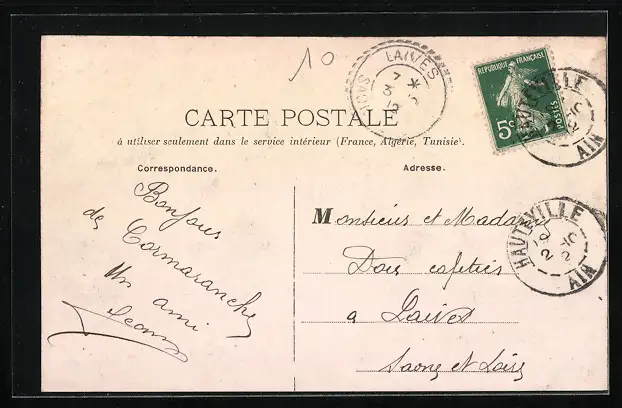 10
LAIVES
7 *
3
SAÔNE
RÉPUBLIQUE FRANÇAISE
5c
POSTES
HAUTEVILLE
AIN
CARTE POSTALE
à utiliser seulement dans le service intérieur (France, Algérie, Tunisie).
Correspondance.
Adresse.
Bonjour
de Cormaranche
Un ami
Monsieur et Madame
cafetier
a Laives
Saone et Loire
HAUTEVILLE
AIN